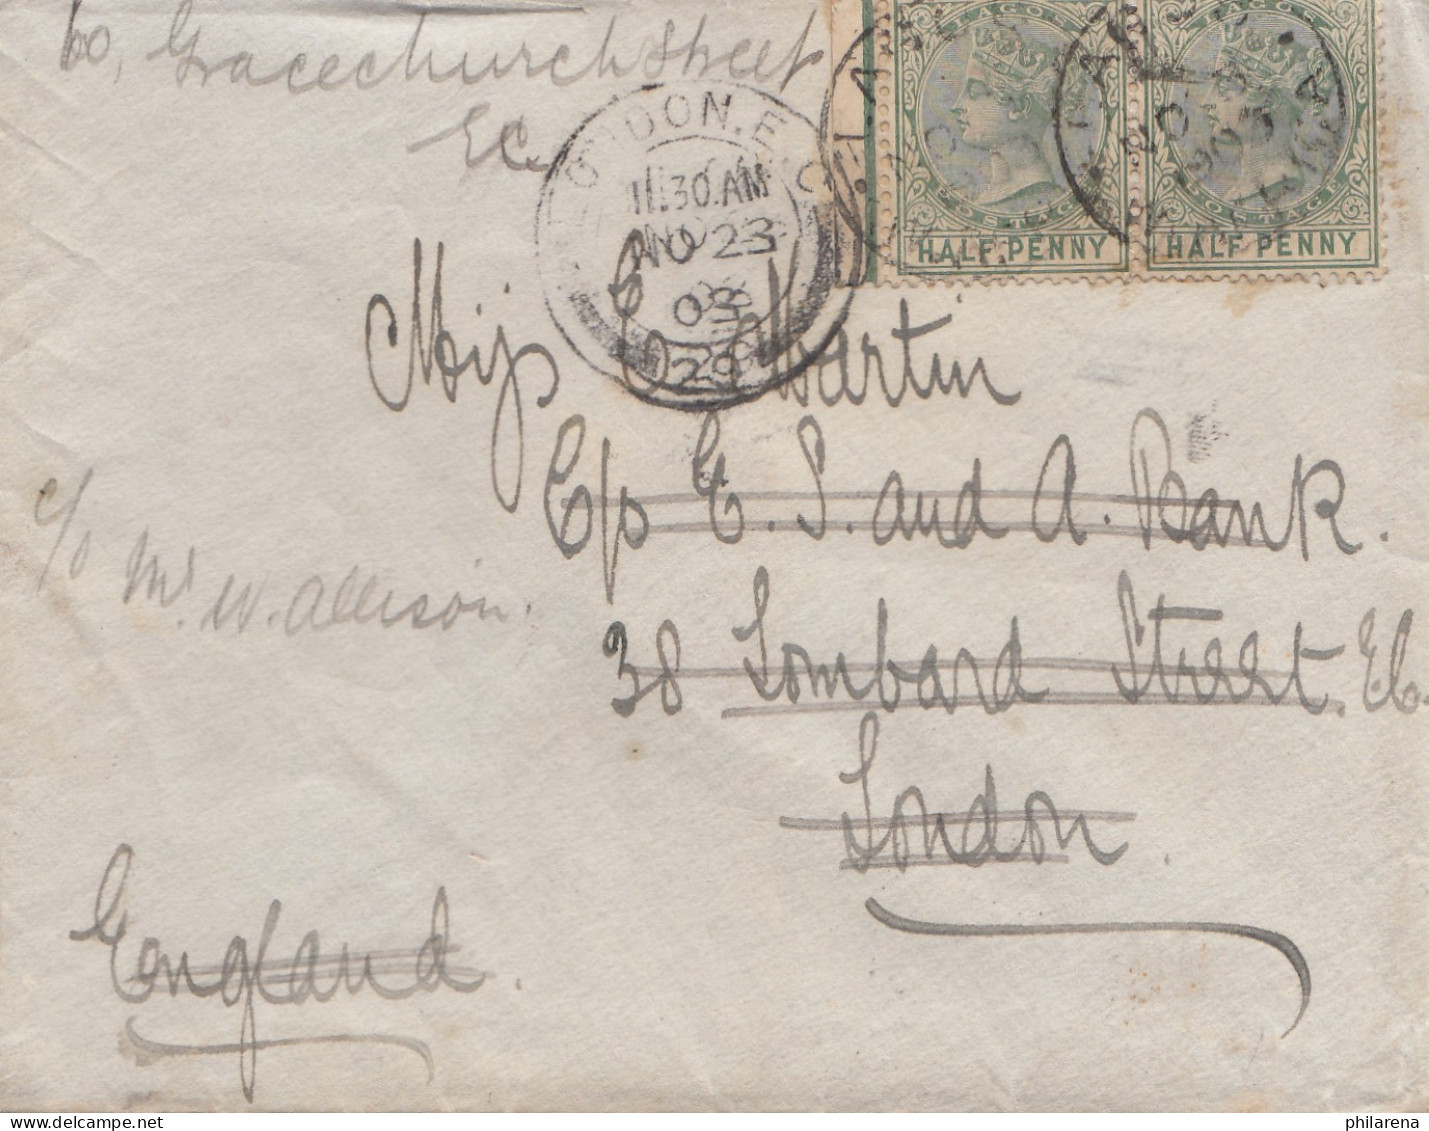 60, Gracechurch Street
E.C.
LONDON. E.C.
11.30. AM
NO 23
03
29
LAGOS
POSTAGE
HALF PENNY
LAGOS
POSTAGE
HALF PENNY
Miss E. Martin
C/o E. S. and A. Bank.
c/o Mr W. Allison.
38 Lombard Street. E.C.
London.
England.
philarena